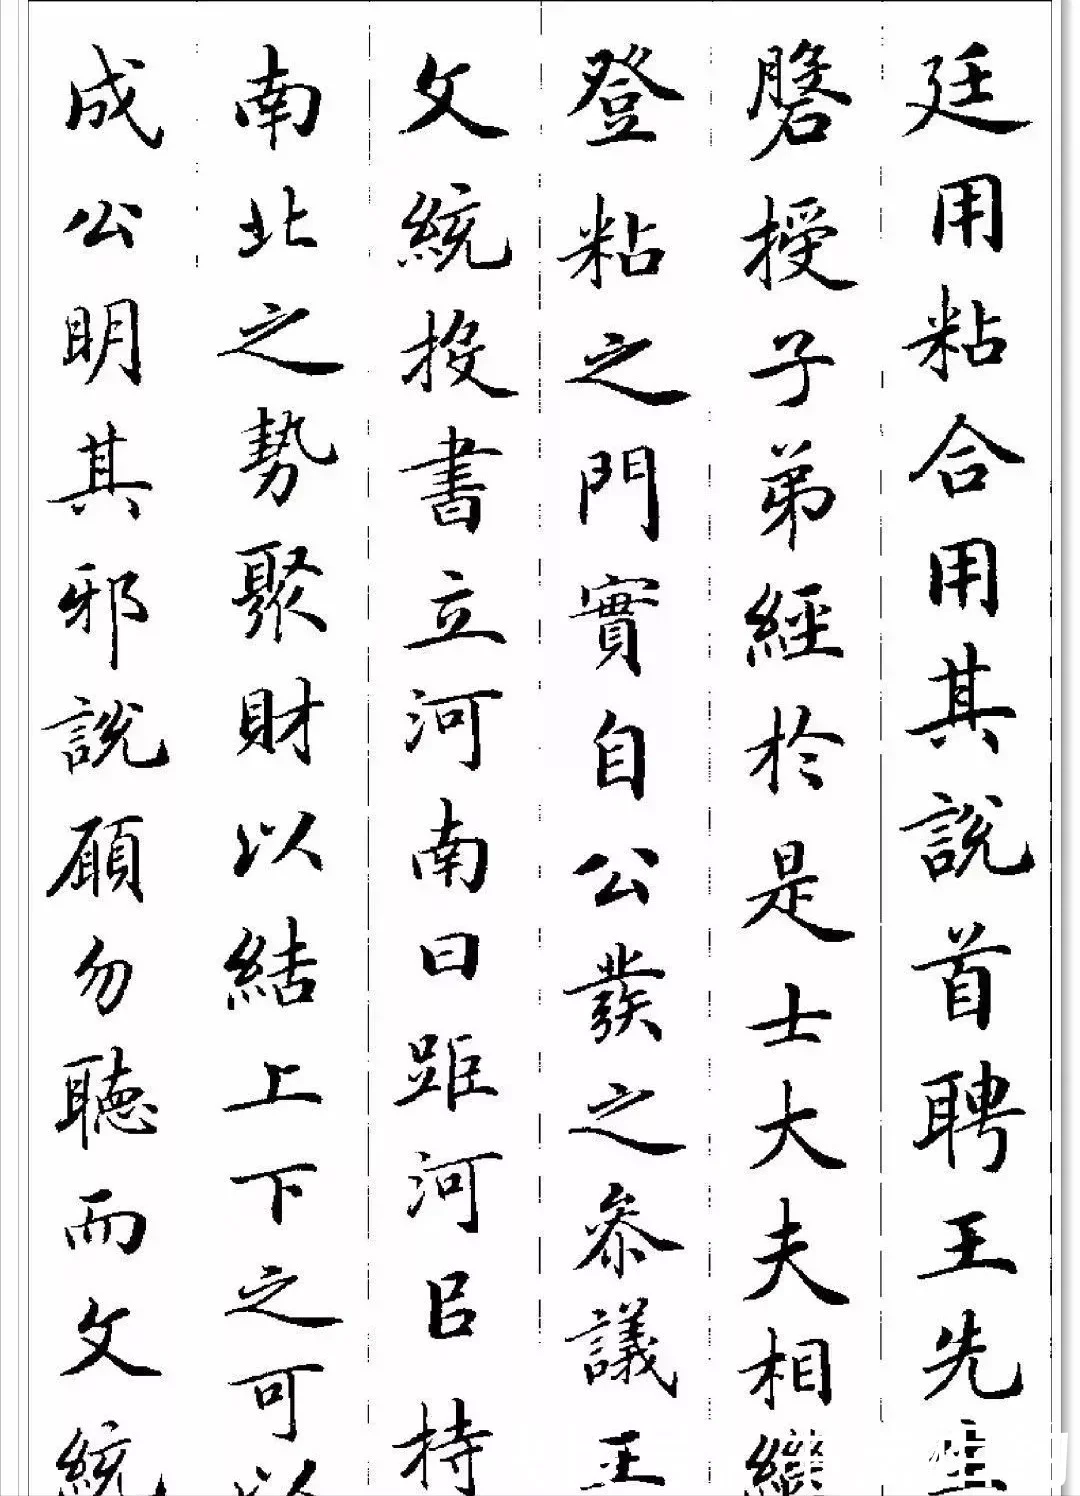 廷用粘合用其說首聘王先生
磐授子弟經於是士大夫相繼
登粘之門實自公發之參議王
文統投書立河南曰距河召持
南北之勢聚財以結上下之可以
成公明其邪說願勿聽而文統